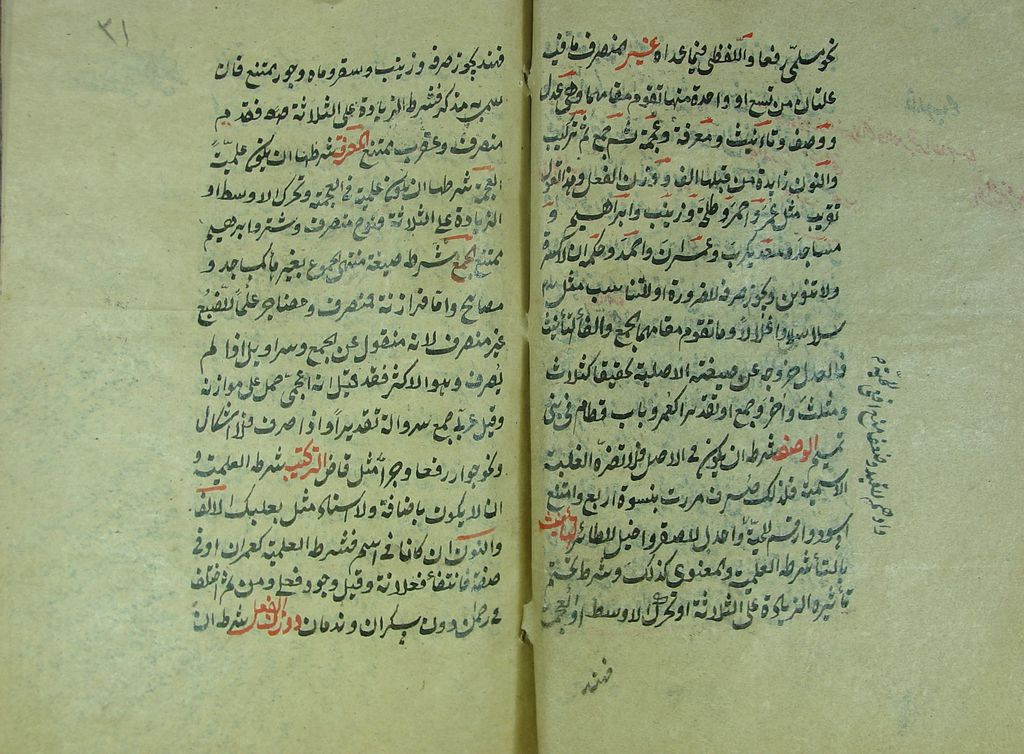 نحو مسلمي رفعا واللفظي فيما عداه غير المنصرف ما فيه
علتان من تسع او واحدة منها تقوم مقامهما وهي عدل
ووصف وتانيث ومعرفة وعجمة ثم جمع ثم تركيب
والنون زايدة من قبلها الف ووزن الفعل وهذا القول
تقريب مثل عمر واحمر وطلحة وزينب وابراهيم و
مساجد ومعديكرب وعمران واحمد وحكمه ان لا كسرة
ولا تنوين ويجوز صرفه للضرورة او للتناسب مثل
سلاسلا واغلالا وما تقوم مقامهما الجمع والفا التانيث
فالعدل خروجه عن صيغته الاصلية تحقيقا كثلاث
ومثلث واخر وجمع او تقديرا كعمر وباب قطام في بني
تميم الوصف شرطه ان يكون في الاصل فلا تضره الغلبة
الاسمية فلذلك صرف مررت بنسوة اربع وامتنع
اسود وارقم للحية واجدل للصقر واخيل للطائر التانيث
بالتا شرطه العلمية والمعنوي كذلك وشرط تحتم
تأثيره الزيادة على الثلاثة او تحرك الاوسط او العجمة
فهند
٣١
فهند يجوز صرفه وزينب وسقر وماه وجور ممتنع فان
سمي به مذكر فشرطه الزيادة على الثلاثة فقدم
منصرف وعقرب ممتنع المعرفة شرطها ان يكون علمية
العجمة شرطها ان يكون علمية في العجمية وتحرك الاوسط او
الزيادة على الثلاثة فنوح منصرف وشتر وابرهيم
ممتنع الجمع شرطه صيغة منتهى الجموع بغير ها كمساجد و
مصابيح واما فرازنة فمنصرف وحضاجر علما للضبع
غير منصرف لانه منقول عن الجمع وسراويل اذا لم
يصرف وهو الاكثر فقد قيل انه اعجمي حمل على موازنه
وقيل عربي جمع سروالة تقديرا واذا صرف فلا اشكال
ونحو جوار رفعا وجرا مثل قاض التركيب شرطه العلمية و
ان لا يكون باضافة ولا اسناد مثل بعلبك الالف
والنون ان كانا في اسم فشرطه العلمية كعمران او في
صفة فانتفاء فعلانة وقيل وجود فعلى ومن ثم اختلف
في رحمن دون سكران وندمان ووزن الفعل شرطه ان